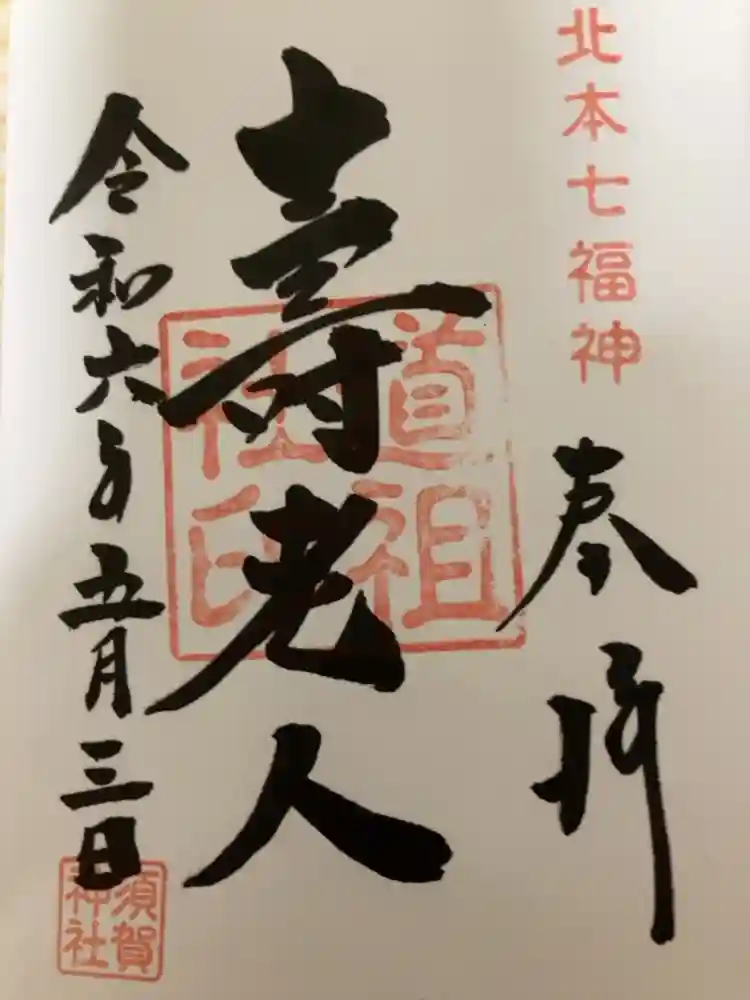 北本七福神
奉拝
壽老人
道祖
社印
令和六年五月三日
須賀
神社